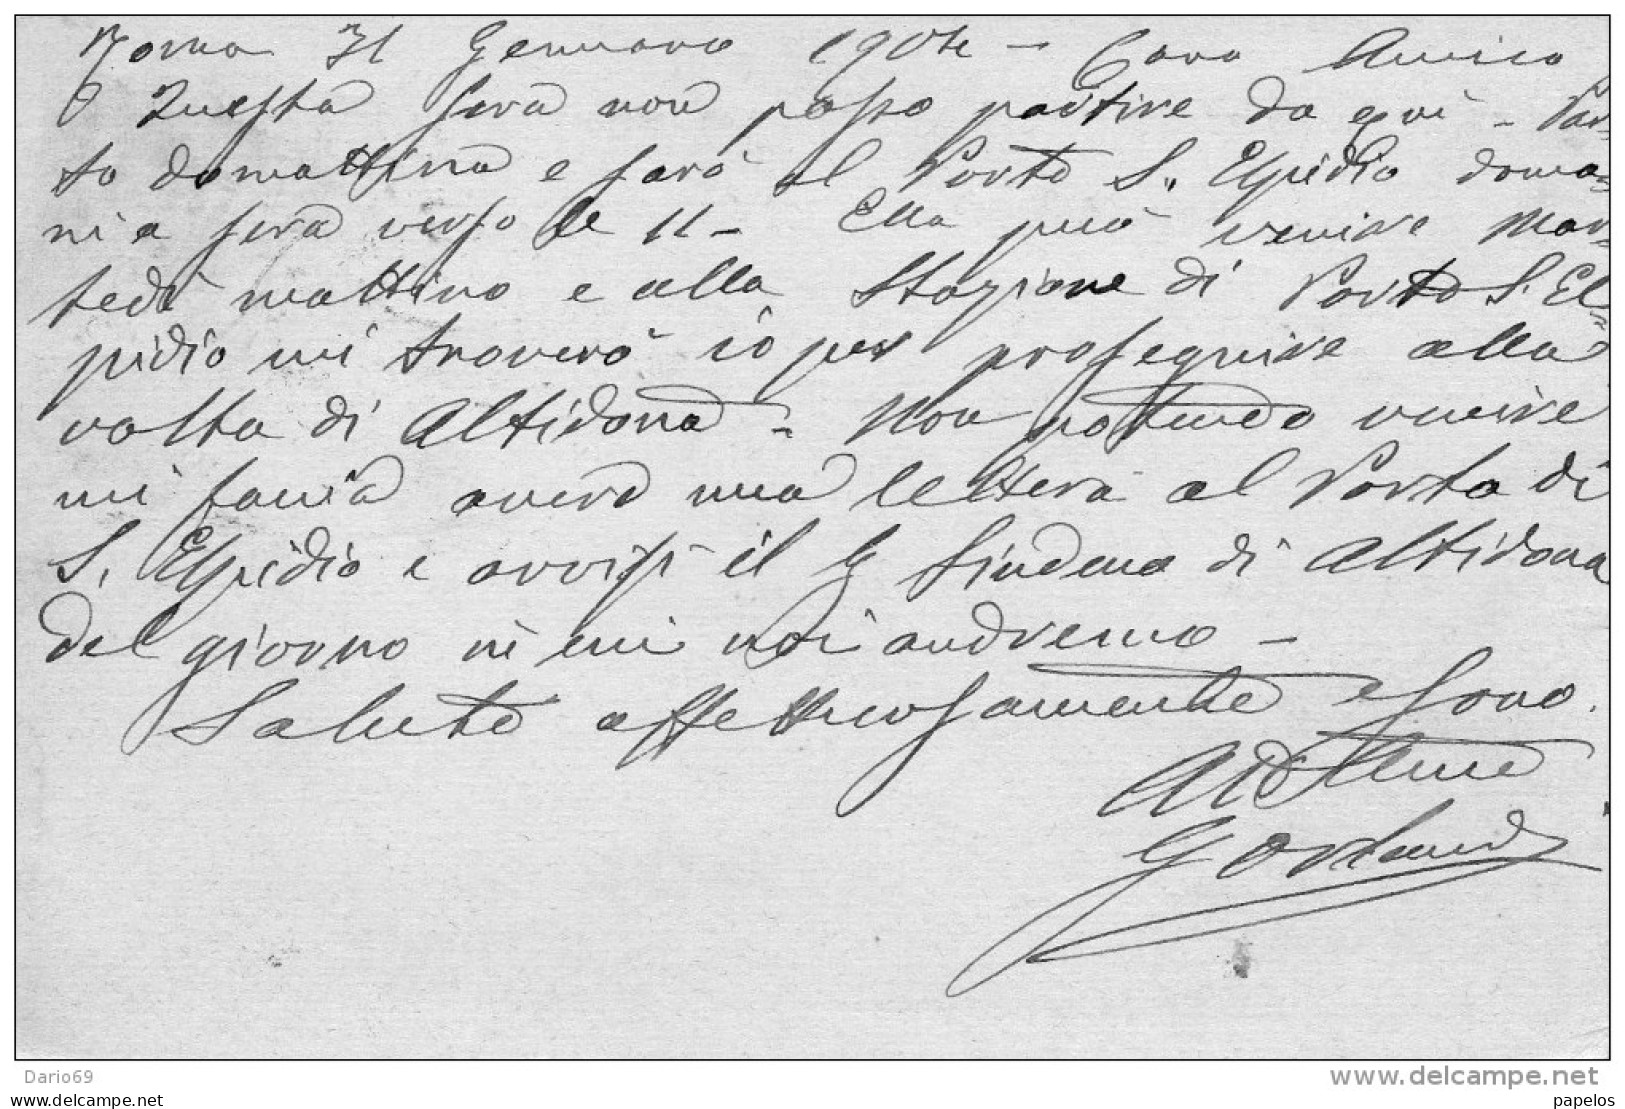 Roma 31 Gennaro 1904 – Caro Amico
Questa sera non posso partire da qui – Par-
to domattina e sarò al Porto S. Elpidio doma-
ni a sera verso le 11 – Ella può venire Mar-
tedì mattino e alla Stazione di Porto S. El-
pidio mi troverà io per proseguire alla
volta di Altidona – Non potendo venire
mi faccia avere una lettera al Porto di
S. Elpidio e avvisi il Sindaco di Altidona
del giorno in cui noi andremo –
Saluto affettuosamente e sono
Dario69
www.delcampe.net
www.delcampe.net
papelos